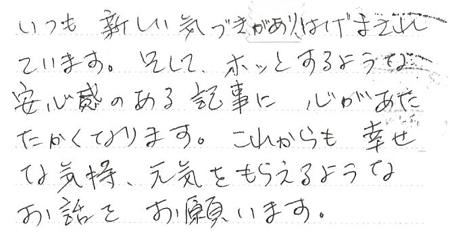 いつも 新しい気づきがあり、はげまされ
ています。そして、ホッとするような
安心感のある記事に 心があた
たかくなります。これからも 幸せ
な気持、元気をもらえるような
お話を お願います。